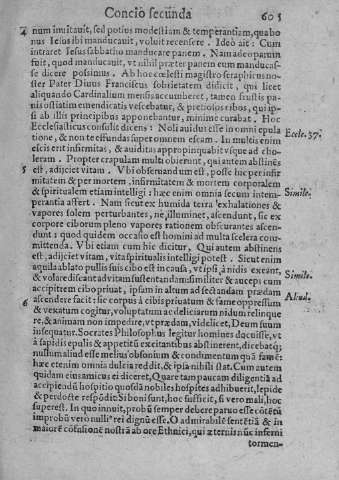 Concio secunda
605
4 num inuitauit, sed potius modestiam & temperantiam, quabo
nus Iesus ibi manducauit, voluit recensere. Ideò ait: Cum
intraret Iesus sabbatho manducare panem. Nam adeo parum
fuit, quod manducauit, vt nihil præter panem eum manducas-
se dicere possimus. Ab hoc cœlesti magistro seraphicus no-
ster Pater Diuus Franciscus sobrietatem didicit, qui licet
aliquando Cardinalium mensis accumberet, tamen frustis pa-
nis ostiatim emendicatis vescebatur, & pretiosos cibos, qui ip-
si ab illis principibus apponebantur, minimè curabat. Hoc
Ecclesiasticus consulit dicens: Noli auidus esse in omni epula
Eccle. 37.
tione, & non te effundas super omnem escam. In multis enim
escis erit infirmitas, & auiditas appropinquabit vsque ad cho-
leram. Propter crapulam multi obierunt, qui autem abstinẽs
5 est, adijciet vitam. Vbi obseruandum est, posse hic per infir
mitatem & per mortem, infirmitatem & mortem corporalem
& spiritualem etiam intelligi: hæc enim omnia secum intem-
Simile.
perantia affert. Nam sicut ex humida terra exhalationes &
vapores solem perturbantes, ne illuminet, ascendunt, sic ex
corpore ciborum pleno vapores rationem obscurantes ascen-
dunt: quod quidem occasio est homini ad multa scelera com-
mittenda. Vbi etiam cum hic dicitur, Qui autem abstinens
est, adijciet vitam, vita spiritualis intelligi potest. Sicut enim
aquila ablato pullis suis cibo est in causa, vt ipsi, à nidis exeant,
Simile.
& volare discant ad vitam sustentandam: similiter & aucepi cum
accipitrem cibo priuat, ipsam in altum ad secandam prædam
6 ascendere facit: sic corpus à cibis priuatum & fame oppressum
Allud.
& vexatum cogitur, voluptatum ac deliciarum nidum relinque
re, & animam non impedire, vt prædam, videlicet, Deum suum
insequatur. Socrates Philosophus legitur homines docuisse, vt
à sapidis epulis & appetitũ excitantibus abstinerent, dicebatq;
nullum aliud esse melius obsonium & condimentum quã famẽ:
hæc etenim omnia dulcia reddit, & ipsa nihili stat. Cum autem
quidam eius amicus ei diceret, Quare tam paucam diligentiã ad
accipiendũ hospitio quosdã nobiles hospites adhiberet, lepidè
& perdoctè respõdit: Si boni sunt, hoc sufficit, si vero mali, hoc
superest. In quo innuit, probũ semper debere paruo esse cõtẽtũ
improbũ verò nulli⁹ rei dignũ esse. O admirabilẽ sentẽtiã & in
maiorẽ cõfusionẽ nostrã ab ore Ethnici, qui æternis nũc inferni
tormen-